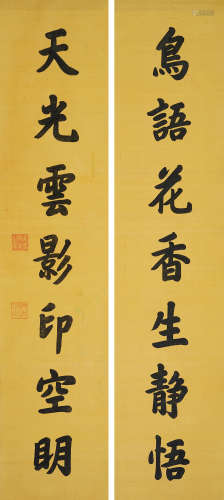 鳥語花香生靜悟
天光雲影印空明